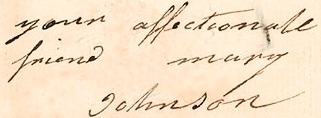 your affectionate
friend mary
Johnson